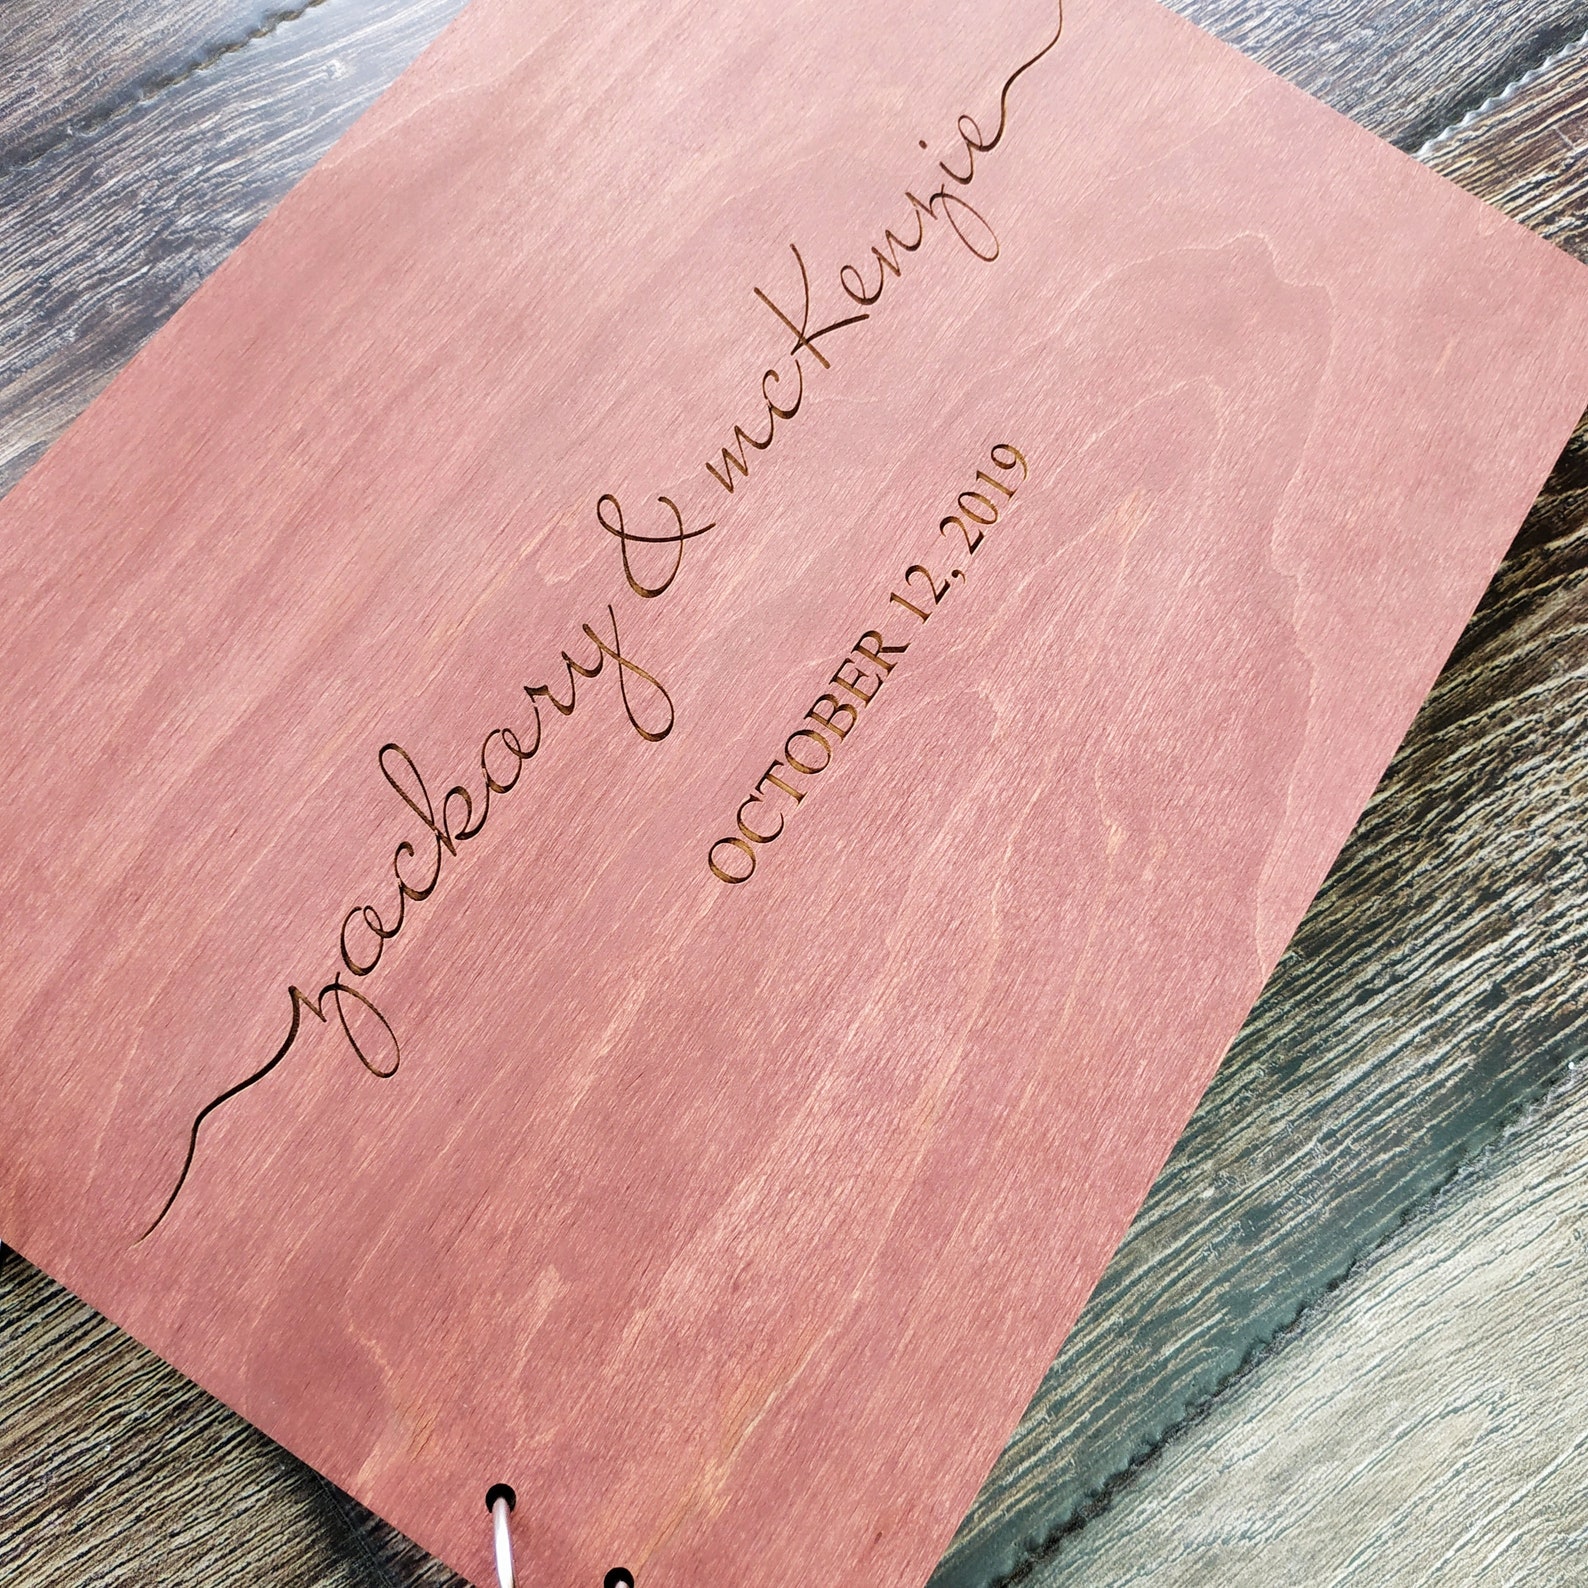 zackary & mcKenzie
OCTOBER 12, 2019